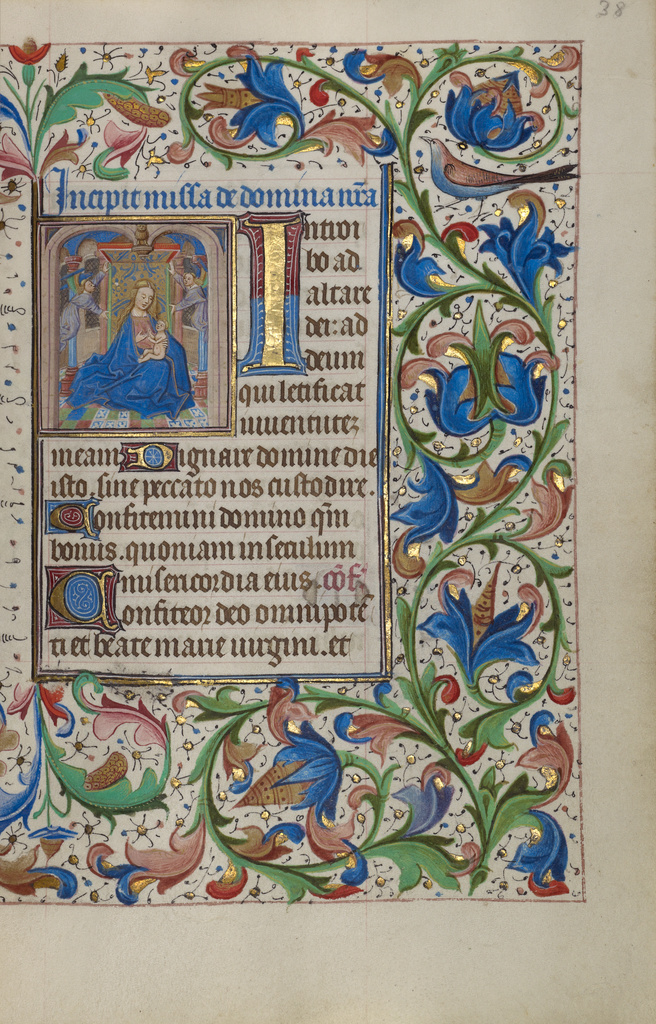 38
Incipit missa de domina nr̃a
Introi
bo ad
altare
dei: ad
deum
qui letificat
iuuentutez
meam Dignare domine die
isto sine peccato nos custodire.
Confitemini domino qm̃
bonus. quoniam in seculum
misericordia eius. cõf.
Confiteor deo omnipotẽ
ti et beate marie uirgini. et